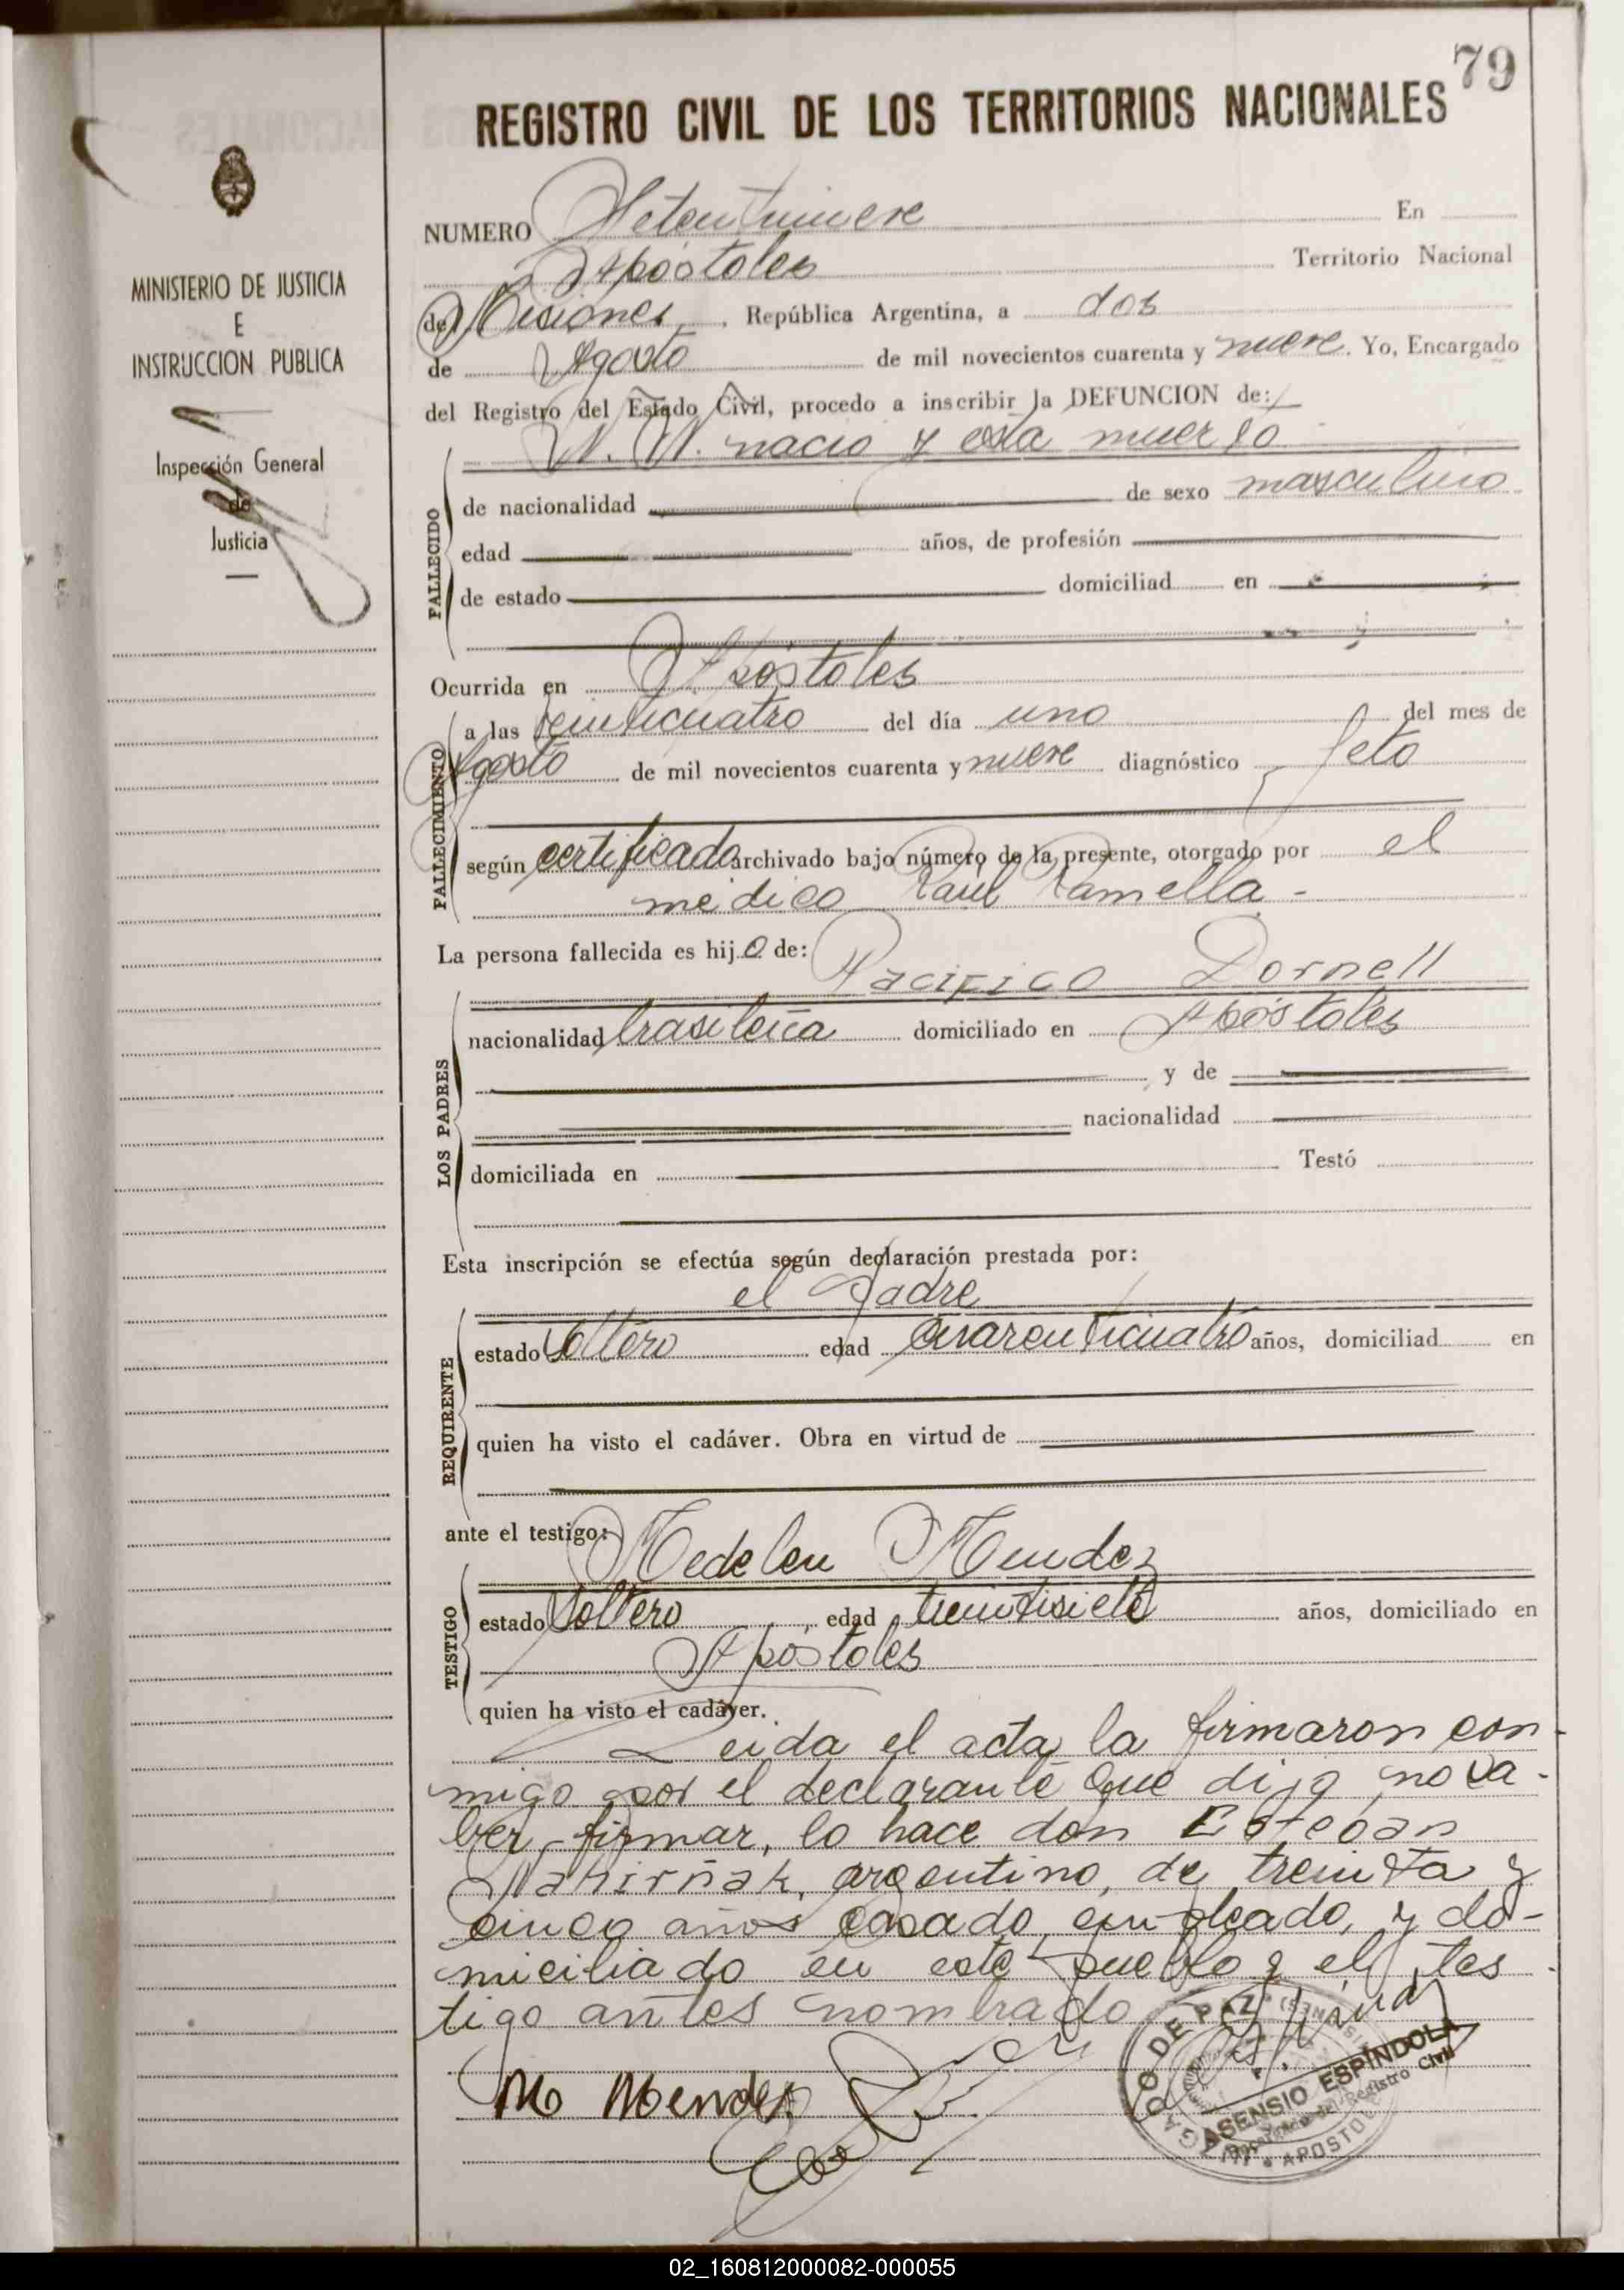 79
REGISTRO CIVIL DE LOS TERRITORIOS NACIONALES
MINISTERIO DE JUSTICIA
E
INSTRUCCION PUBLICA
Inspección General
de
Justicia
NUMERO Setentinueve En
Apóstoles Territorio Nacional
de Misiones, República Argentina, a dos
de Agosto de mil novecientos cuarenta y nueve. Yo, Encargado
del Registro del Estado Civil, procedo a inscribir la DEFUNCION de:
N. N. nacio y esta muerto
FALLECIDO
de nacionalidad de sexo masculino
edad años, de profesión
de estado domiciliad en
Ocurrida en Apóstoles
FALLECIMIENTO
a las veinticuatro del día uno del mes de
Agosto de mil novecientos cuarenta y nueve diagnóstico feto
según certificado archivado bajo número de la presente, otorgado por el
médico Raúl Ramella -
La persona fallecida es hijo de:
Pacifico Dornell
LOS PADRES
nacionalidad brasileña domiciliado en Apóstoles
y de
nacionalidad
domiciliada en Testó
Esta inscripción se efectúa según declaración prestada por:
el Padre
REQUIRENTE
estado Soltero edad cuarenticuatro años, domiciliad en
quien ha visto el cadáver. Obra en virtud de
ante el testigo:
Medelen Mendez
TESTIGO
estado Soltero, edad treintisiete años, domiciliado en
Apóstoles
quien ha visto el cadáver.
Leida el acta la firmaron con-
migo por el declarante que dijo no sa-
ber firmar, lo hace don Esteban
argentino, de treinta y
cinco años casado, empleado, y do-
miciliado en este pueblo y el tes
tigo antes nombrado
Mo Mendez
JUZGADO DE PAZ
ASENSIO ESPINDOLA
Encargado del Registro Civil
APOSTOLES
02_160812000082-000055